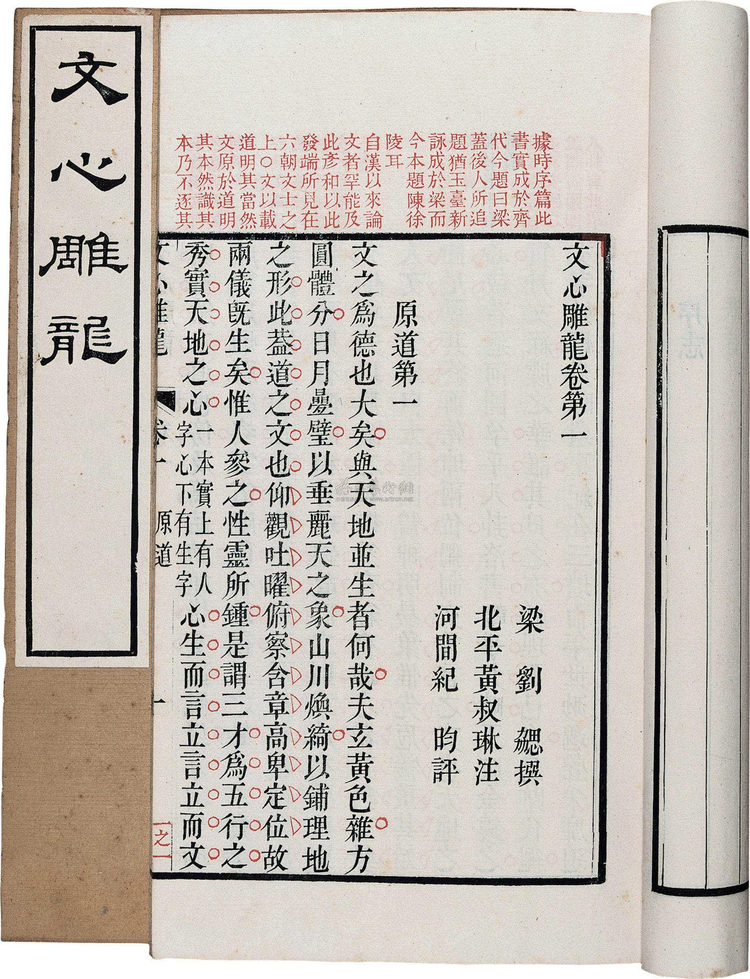 文心雕龍
據時序篇此
書實成於齊
代今題曰梁
蓋後人所追
題猶玉臺新
詠成於梁而
今本題陳徐
陵耳
自漢以來論
文者罕能及
此彥和以此
發端所見在
六朝文士之
上○文以載
道明其當然
文原於道明
其本然識其
本乃不逐其
文心雕龍卷第一
梁劉勰撰
北平黃叔琳注
河間紀昀評
原道第一
文之爲德也大矣與天地並生者何哉夫玄黃色雜方
圓體分日月疊璧以垂麗天之象山川煥綺以鋪理地
之形此葢道之文也仰觀吐曜俯察含章高卑定位故
兩儀旣生矣惟人參之性靈所鍾是謂三才爲五行之
秀實天地之心一本實上有人字心下有生字心生而言立言立而文
文心雕龍 卷一 原道 一
之一